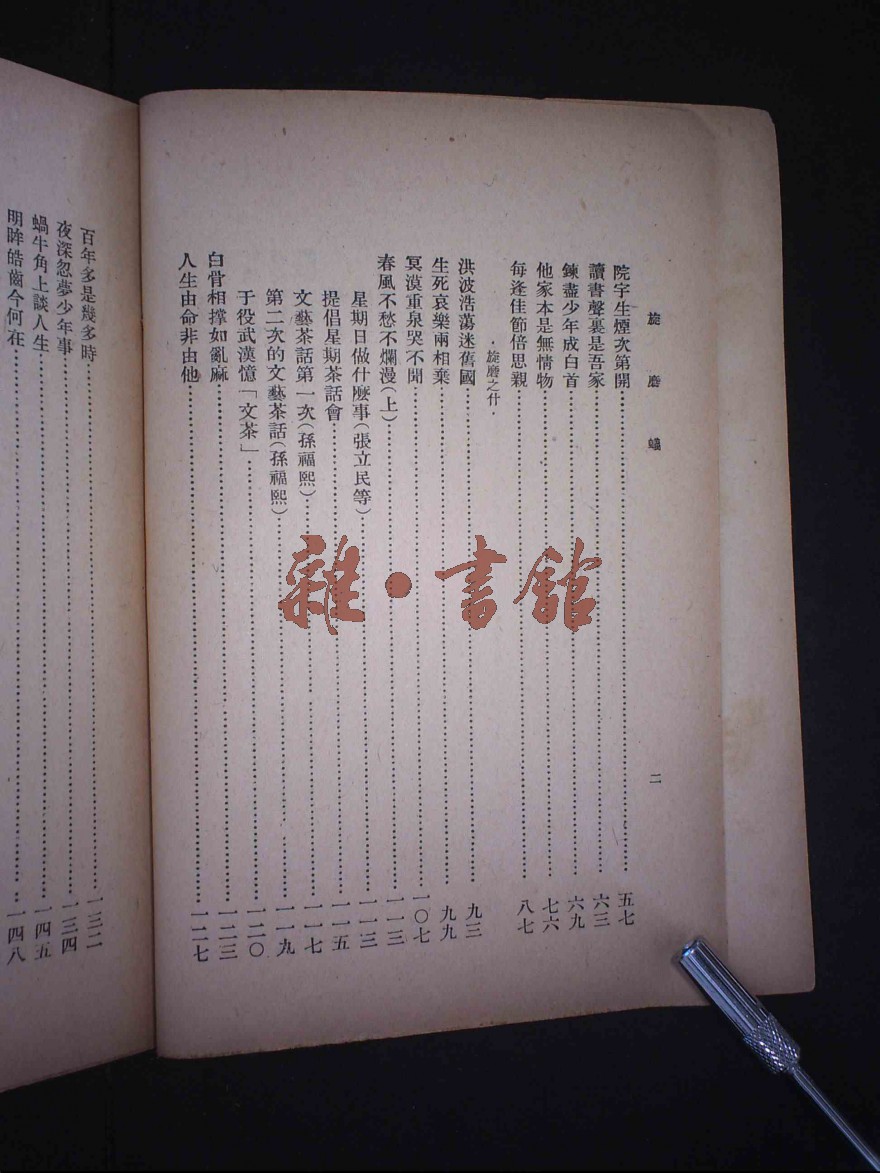 旋磨蟻
二
院宇生煙次第開……五七
讀書聲裏是吾家……六三
鍊盡少年成白首……六九
他家本是無情物……七六
每逢佳節倍思親……八七
·旋磨之什·
洪波浩蕩迷舊國……九三
生死哀樂兩相乘……九九
冥漠重泉哭不聞……一〇七
春風不愁不爛漫(上)……一一三
星期日做什麽事(張立民等)……一一三
提倡星期茶話會……一一五
文藝茶話第一次(孫福熙)……一一七
第二次的文藝茶話(孫福熙)……一一九
于役武漢憶「文茶」……一二〇
白骨相撐如亂麻……一二三
人生由命非由他……一二七
百年多是幾多時……一三二
夜深忽夢少年事……一三四
蝸牛角上談人生……一四五
明眸皓齒今何在……一四八
雜·書館